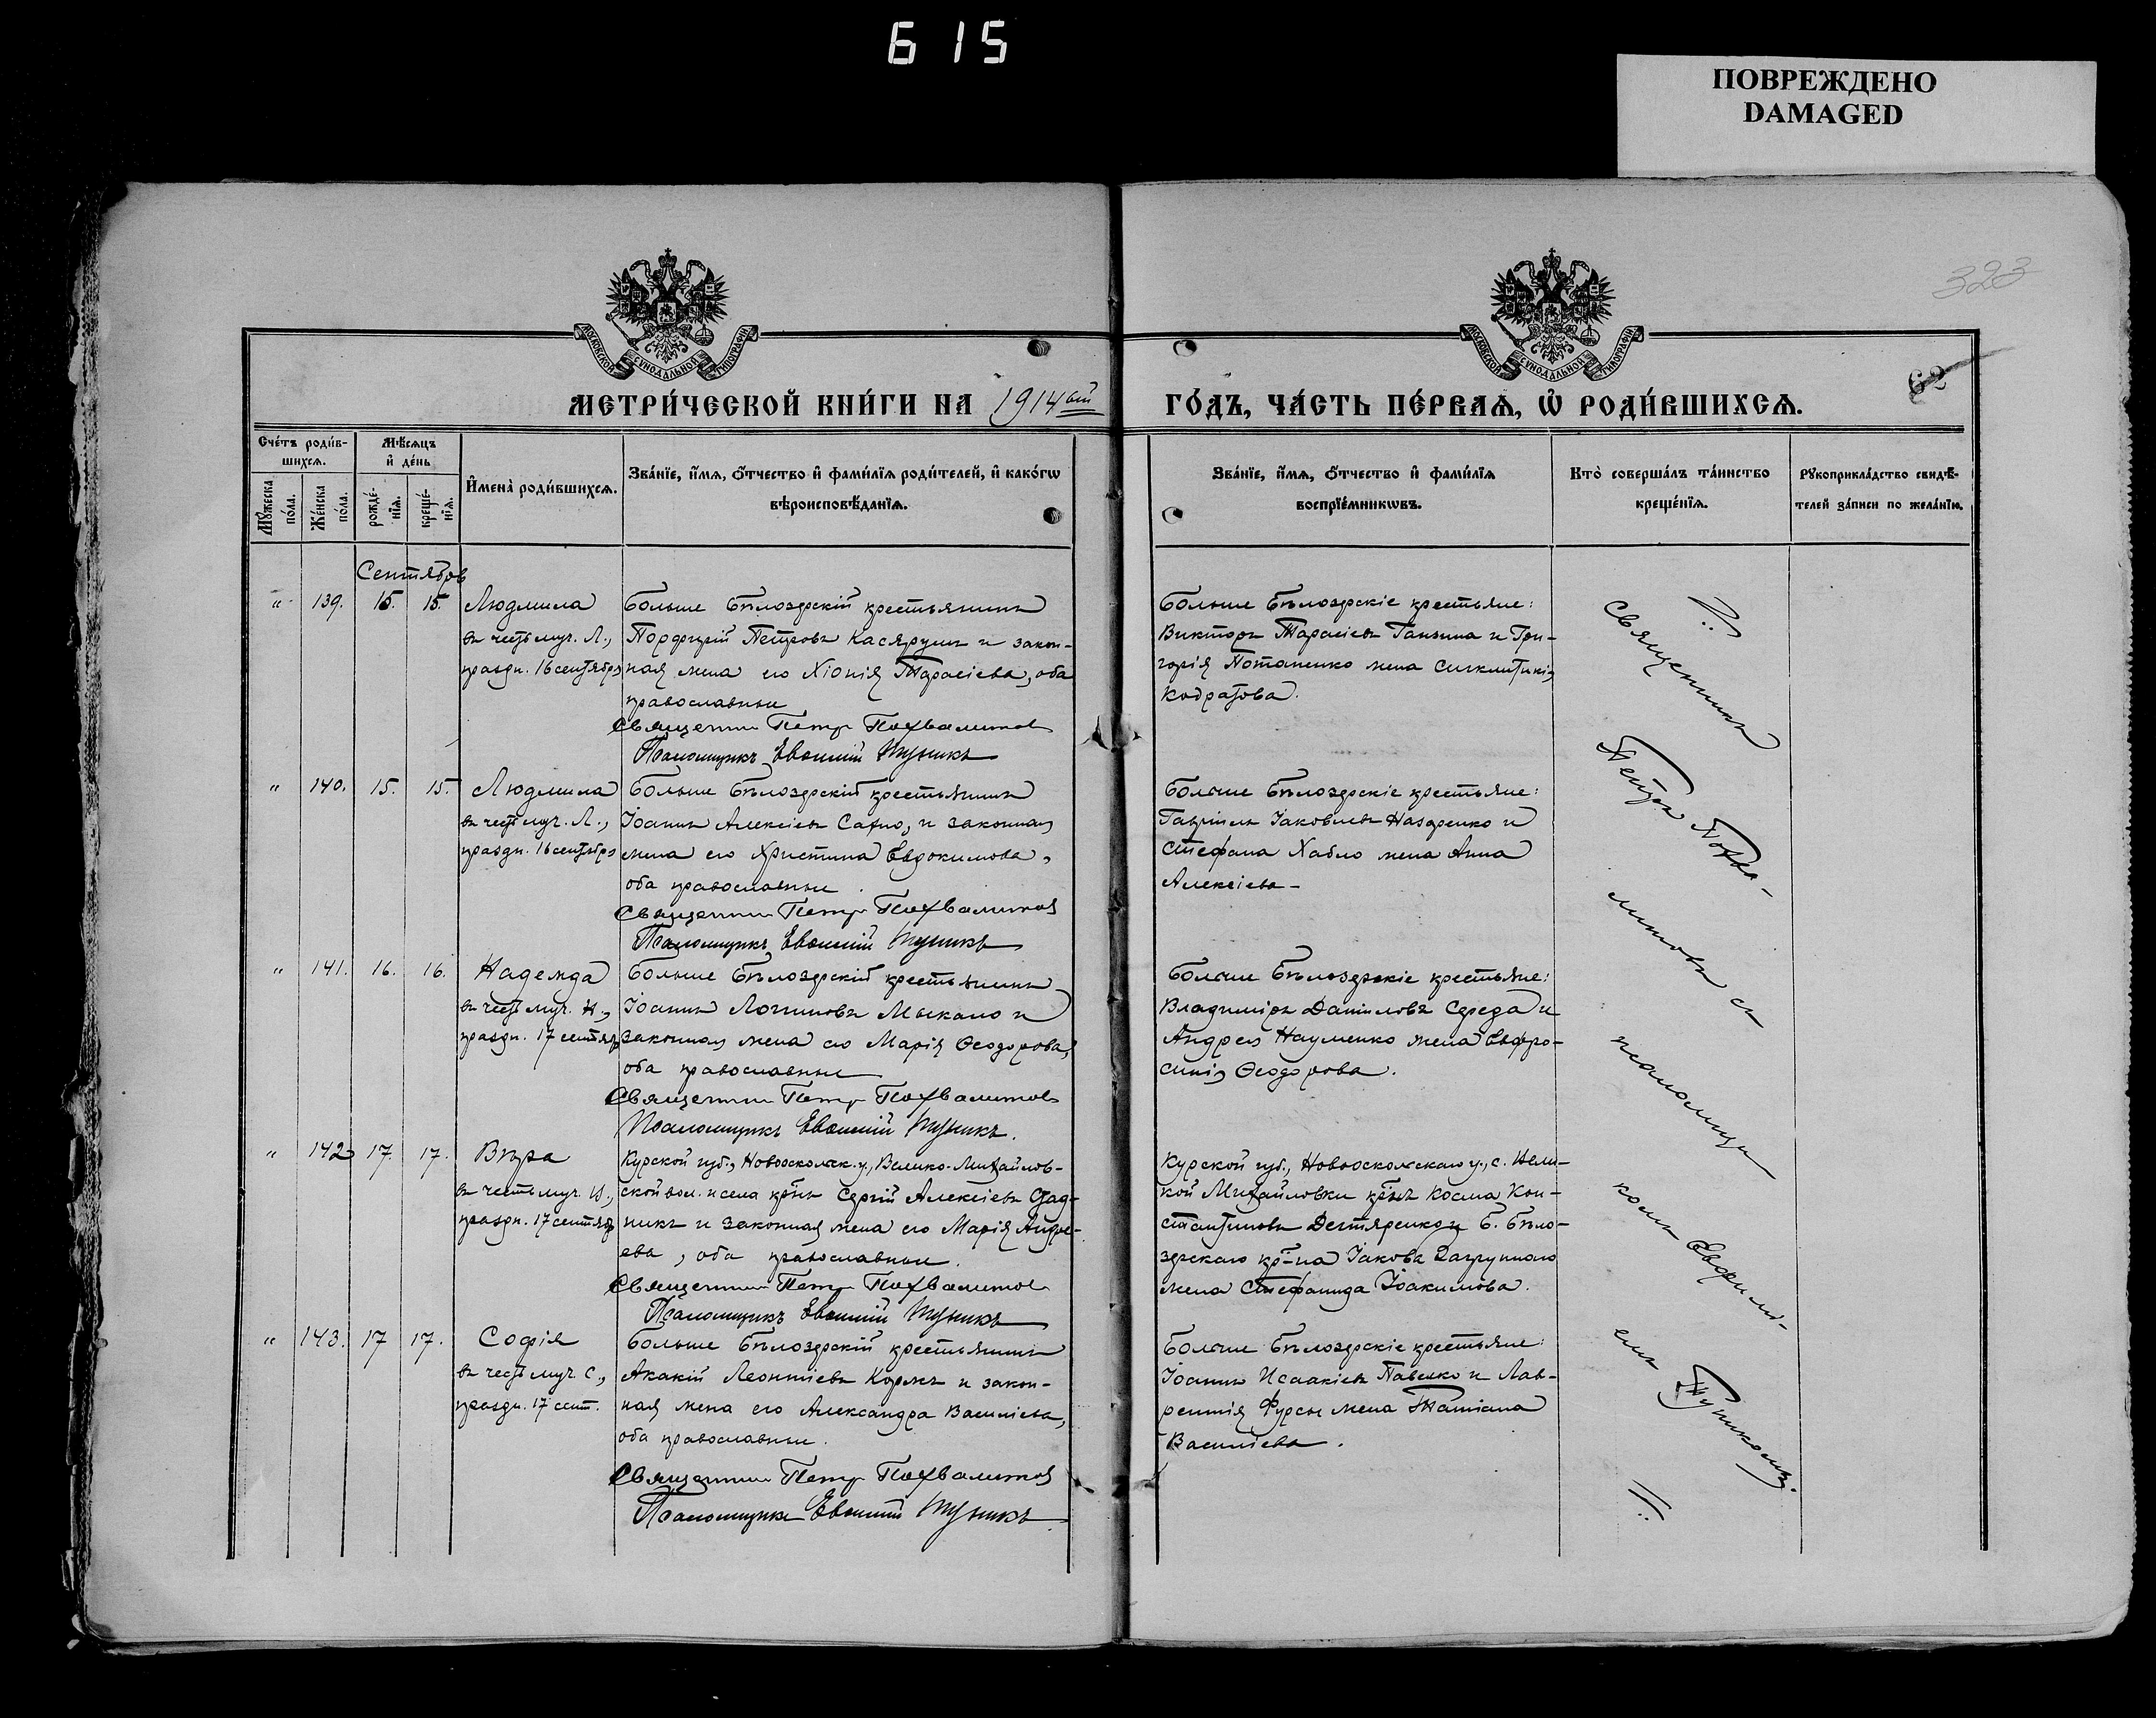 615
ПОВРЕЖДЕНО
DAMAGED
323
62
МОСКОВСКОЙ СУНОДАЛЬНОЙ ТИПОГРАФІИ
МОСКОВСКОЙ СУНОДАЛЬНОЙ ТИПОГРАФІИ
МЕТРИ́ЧЕСКОЙ КНИ́ГИ НА 1914ый ГО́ДЪ, ЧА́СТЬ ПЕ́РВАѦ, Ѡ҆ РОДИ́ВШИХСѦ.
Сче́тъ роди́в-
шихсѧ.
Мꙋ́жеска по́ла.
Же́нска по́ла.
Мѣ́сѧцъ
и҆ де́нь
рожде́-
нїѧ.
креще́-
нїѧ.
И҆мена̀ роди́вшихсѧ.
Зва́нїе, и҆́мѧ, ѻ҆́тчество и҆ фами́лїѧ роди́телей, и҆ како́гѡ
вѣроисповѣ́данїѧ.
Зва́нїе, и҆́мѧ, ѻ҆́тчество и҆ фами́лїѧ
воспрїе́мникѡвъ.
Кто̀ соверша́лъ та́инство
креще́нїѧ.
Рꙋкоприкла́дство свидѣ́-
телей за́писи по жела́нїю.
Сентябрь
" 139. 15. 15. Людмила
въ честь муч. Л.,
праздн. 16 сентября
Больше Бѣлозерскій крестьянинъ
Порфирій Петровъ Касярумъ и закон-
ная жена его Хіонія Тарасіева, оба
православные
Священник Петр Похвалитов
Псаломщикъ Евфимій Тупикъ
Больше Бѣлозерскіе крестьяне:
Викторъ Тарасіевъ Ганжина и Гри-
горія Потапенко жена Синклитикія
Кодратова.
" 140. 15. 15. Людмила
въ честь муч. Л.,
праздн. 16 сентября
Больше Бѣлозерскій крестьянинъ
Іоаннъ Алексіевъ Сахно, и законная
жена его Христина Евдокимова,
оба православные.
Священник Петр Похвалитов
Псаломщикъ Евфимій Тупикъ
Больше Бѣлозерскіе крестьяне:
Гавріилъ Іаковлевъ Назаренко и
Стефана Хабло жена Анна
Алексіева
" 141. 16. 16. Надежда
въ честь муч. Н.,
праздн. 17 сентяб
Больше Бѣлозерскій крестьянинъ
Іоаннъ Логиновъ Мыкало и
законная жена его Марія Ѳеодорова,
оба православные
Священник Петр Похвалитов
Псаломщикъ Евфимій Тупикъ.
Больше Бѣлозерскіе крестьяне:
Владиміръ Даніиловъ Середа и
Андрея Науменко жена Евфро-
синія Ѳеодорова.
" 142 17. 17. Вѣра
въ честь муч. В.,
праздн. 17 сентяб
Курской губ., Новооскольск. у., Велико-Михайлов-
ской вол. и села кр-нъ Сергій Алексіевъ
и законная жена его Марія Андре-
ева, оба православные.
Священник Петр Похвалитов
Псаломщикъ Евфимій Тупикъ
Курской губ., Новооскольскаго у., с. Вели-
кой Михайловки кр-нъ Косма Кон-
стантиновъ Дегтяренко и Б. Бѣло-
зерскаго кр-на Іакова Загрупнаго
жена Стефанида Іоакимова.
" 143. 17 17. Софія
въ честь муч. С.,
праздн. 17 сент.
Больше Бѣлозерскій крестьянинъ
Акакій Леонтіевъ Коржъ и закон-
ная жена его Александра Василіева,
оба православные.
Священник Петр Похвалитов
Псаломщикъ Евфимій Тупикъ
Больше Бѣлозерскіе крестьяне:
Іоаннъ Исаакіевъ Павелко и Лав-
рентія Фурсы жена Татіана
Василіева.
Священникъ
Петръ Похва-
литовъ съ
псаломщи-
комъ Евфимі-
емъ Тупикомъ.